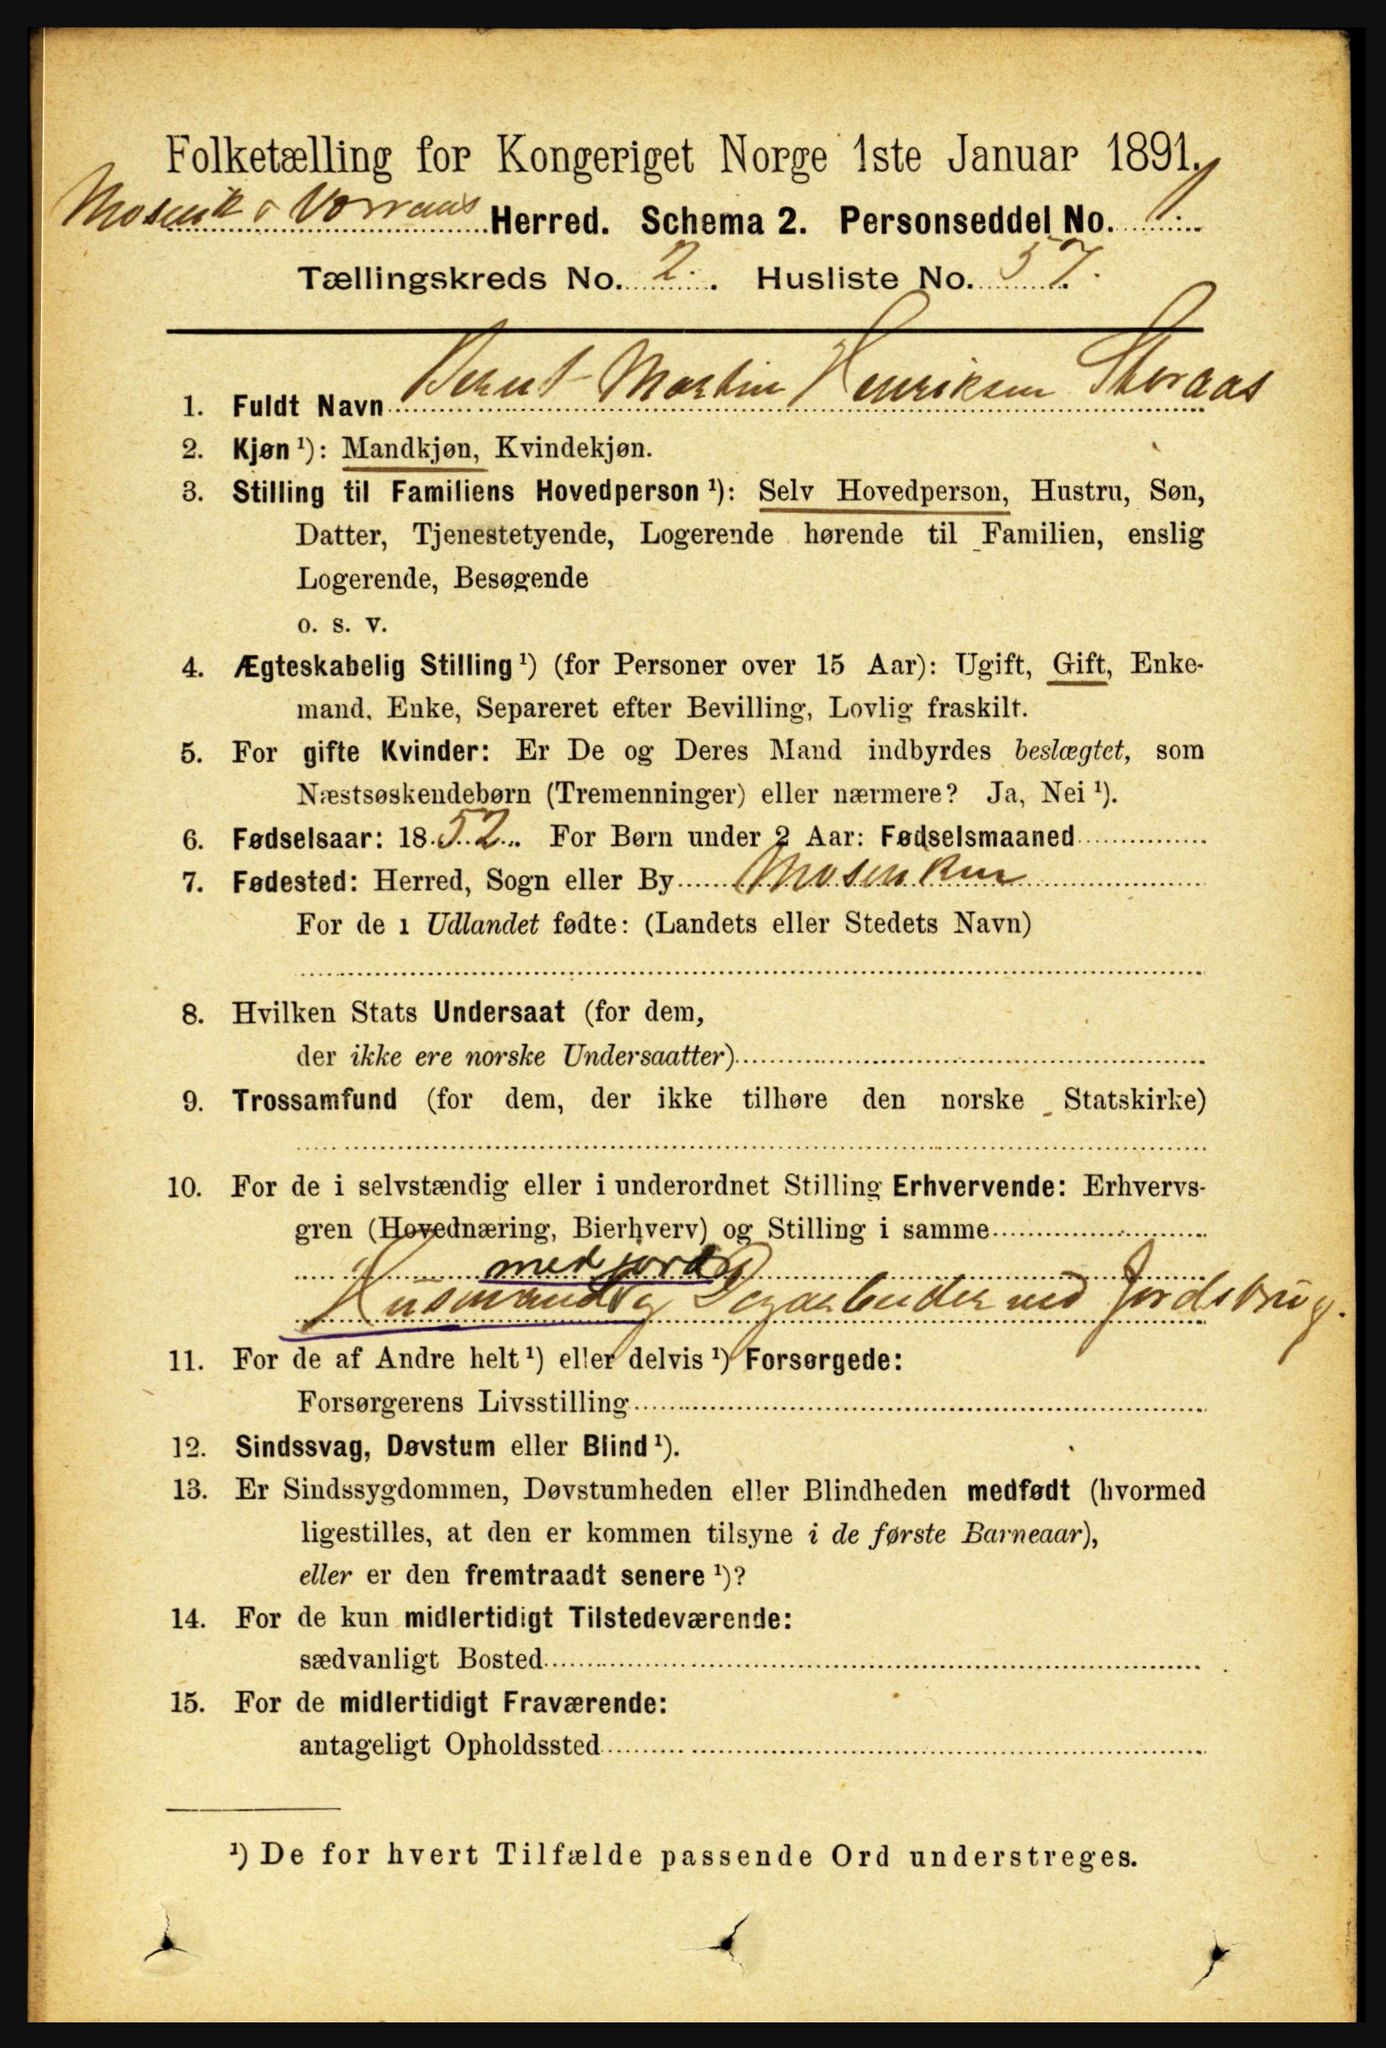 Folketælling for Kongeriget Norge 1ste Januar 1891.
Mosvik o Vorraas Herred. Schema 2. Personseddel No. 1.
Tællingskreds No. 2. Husliste No. 57.
1. Fuldt Navn Bernt Martin Henriksen Storaas
2. Kjøn ¹): Mandkjøn, Kvindekjøn.
3. Stilling til Familiens Hovedperson ¹): Selv Hovedperson, Hustru, Søn,
Datter, Tjenestetyende, Logerende hørende til Familien, enslig
Logerende, Besøgende
o. s. v.
4. Ægteskabelig Stilling ¹) (for Personer over 15 Aar): Ugift, Gift, Enke-
mand, Enke, Separeret efter Bevilling, Lovlig fraskilt.
5. For gifte Kvinder: Er De og Deres Mand indbyrdes beslægtet, som
Næstsøskendebørn (Tremenninger) eller nærmere? Ja, Nei ¹).
6. Fødselsaar: 1852. For Børn under 2 Aar: Fødselsmaaned
7. Fødested: Herred, Sogn eller By Mosviken
For de i Udlandet fødte: (Landets eller Stedets Navn)
8. Hvilken Stats Undersaat (for dem,
der ikke ere norske Undersaatter)
9. Trossamfund (for dem, der ikke tilhøre den norske Statskirke)
10. For de i selvstændig eller i underordnet Stilling Erhvervende: Erhvervs-
gren (Hovednæring, Bierhverv) og Stilling i samme
med jord
Husmand og Dagarbeider ved Jordbrug.
11. For de af Andre helt ¹) eller delvis ¹) Forsørgede:
Forsørgerens Livsstilling
12. Sindssvag, Døvstum eller Blind ¹).
13. Er Sindssygdommen, Døvstumheden eller Blindheden medfødt (hvormed
ligestilles, at den er kommen tilsyne i de første Barneaar),
eller er den fremtraadt senere ¹)?
14. For de kun midlertidigt Tilstedeværende:
sædvanligt Bosted
15. For de midlertidigt Fraværende:
antageligt Opholdssted
¹) De for hvert Tilfælde passende Ord understreges.